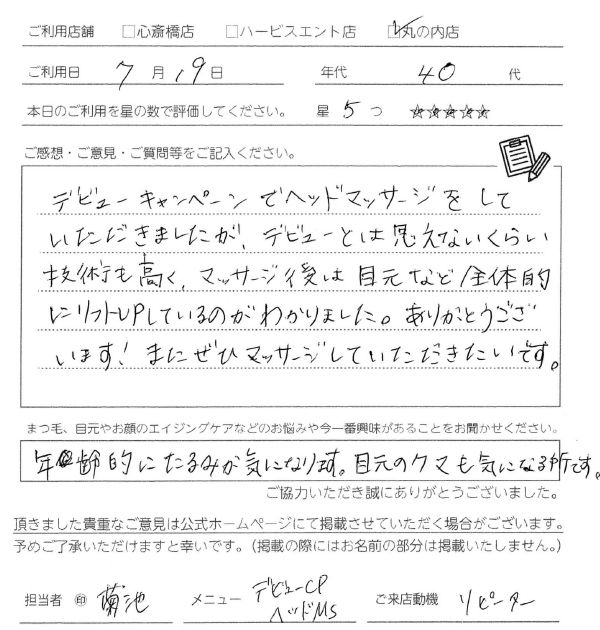 ご利用店舗 □心斎橋店 □ハービスエント店 ☑丸の内店
ご利用日 7月19日 年代 40代
本日のご利用を星の数で評価してください。 星 5つ ☆☆☆☆☆
ご感想・ご意見・ご質問等をご記入ください。
デビューキャンペーンでヘッドマッサージをして
いただきましたが、デビューとは思えないくらい
技術も高く、マッサージ後は目元など全体的
にリフトUPしているのがわかりました。ありがとうござ
います！またぜひマッサージしていただきたいです。
まつ毛、目元やお顔のエイジングケアなどのお悩みや今一番興味があることをお聞かせください。
年齢的にたるみが気になります。目元のクマも気になる所です。
ご協力いただき誠にありがとうございました。
頂きました貴重なご意見は公式ホームページにて掲載させていただく場合がございます。
予めご了承いただけますと幸いです。(掲載の際にはお名前の部分は掲載いたしません。)
担当者 ㊞ 菊池 メニュー デビューCP ご来店動機 リピーター
ヘッドMS